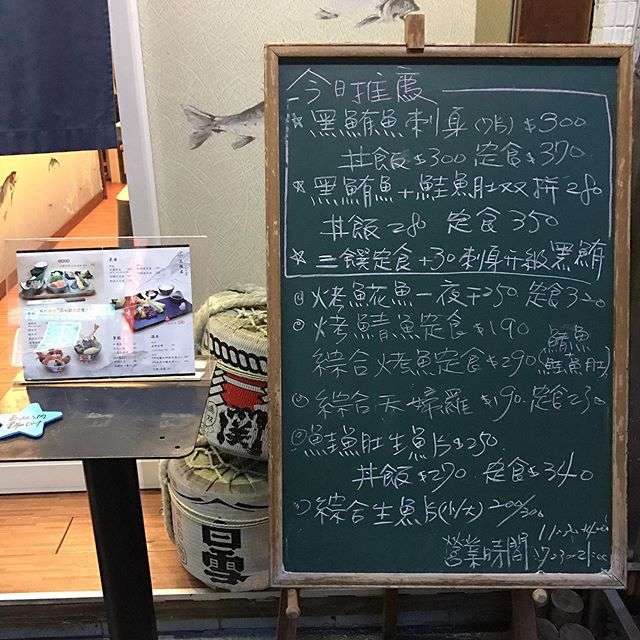 今日推薦
★黑鮪魚刺身(7片)$300
丼飯$300 定食$370
★黑鮪魚+鮭魚肚双拼280
丼飯280 定食350
☆三饌定食+30刺身升級黑鮪
烤魚花魚一夜干250 定食320
烤鯖魚定食$190
綜合烤魚定食$290(鯖魚鮭魚肚)
綜合天婦羅$190 定食230
鮭魚肚生魚片$250
丼飯$270 定食$340
綜合生魚片(小/大)200/300
營業時間
關
白雪